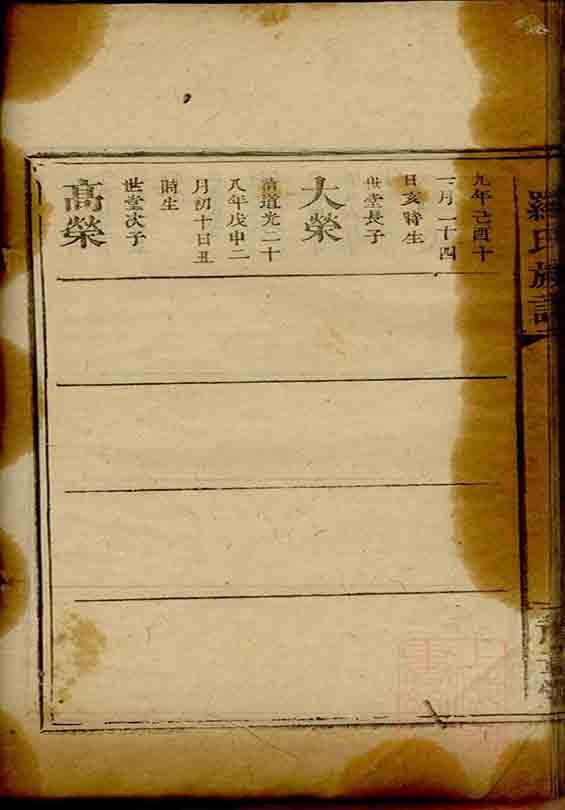 羅氏族譜
九年己酉十
二月二十四
日亥時生
世堂長子
大榮
清道光二十
八年戊申二
月初十日丑
時生
世堂次子
高榮